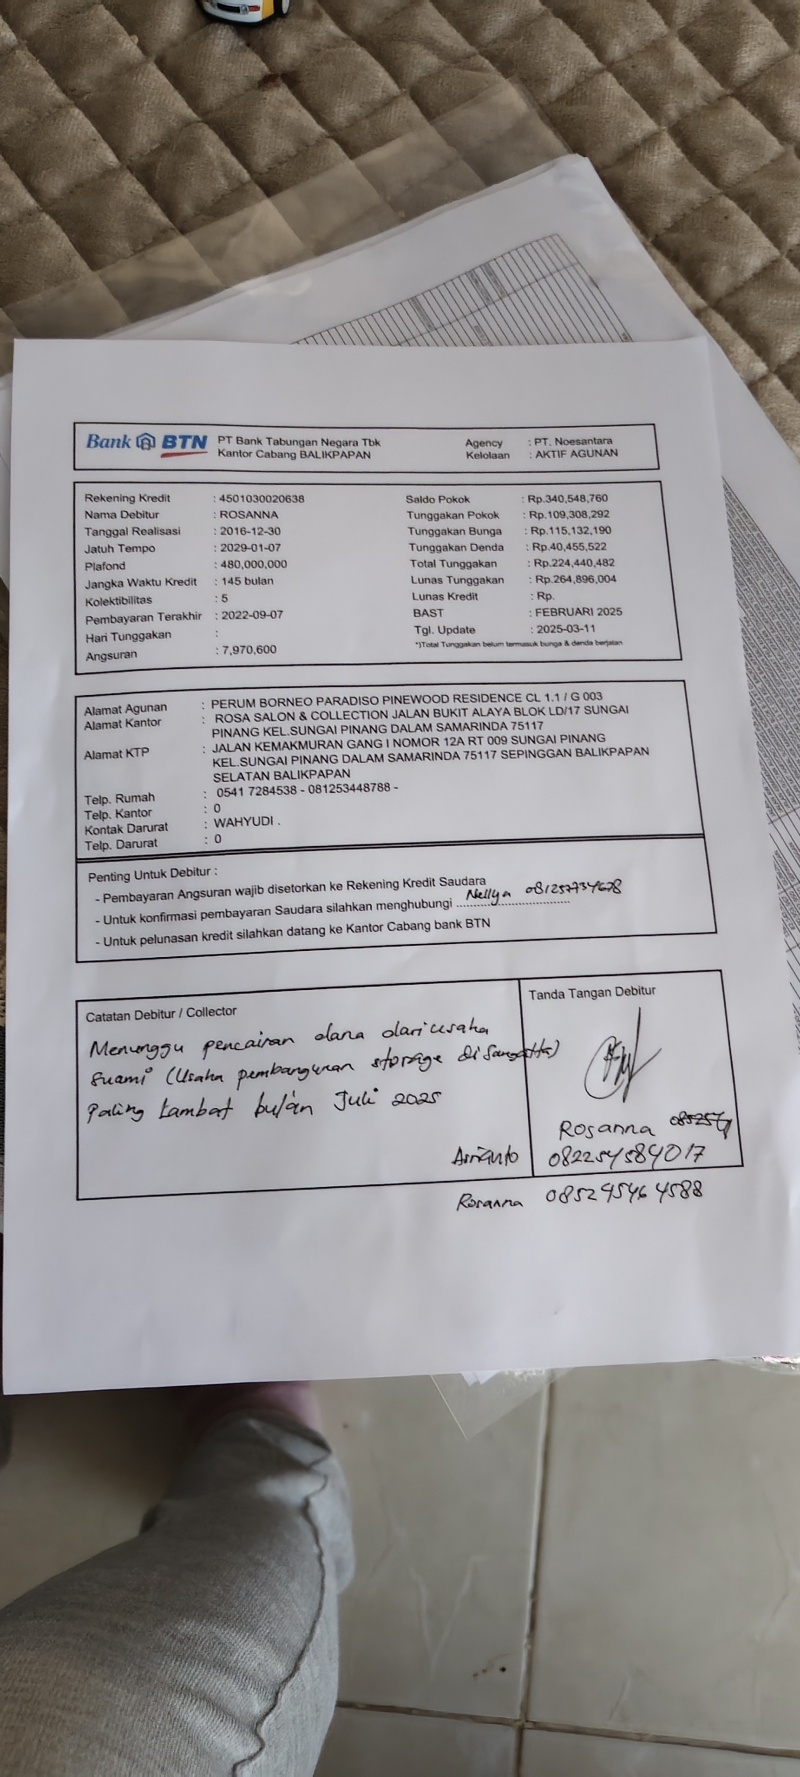 Bank BTN PT Bank Tabungan Negara Tbk Agency : PT. Noesantara
Kantor Cabang BALIKPAPAN Kelolaan : AKTIF AGUNAN
Rekening Kredit : 4501030020638 Saldo Pokok : Rp.340,548,760
Nama Debitur : ROSANNA Tunggakan Pokok : Rp.109,308,292
Tanggal Realisasi : 2016-12-30 Tunggakan Bunga : Rp.115,132,190
Jatuh Tempo : 2029-01-07 Tunggakan Denda : Rp.40,455,522
Plafond : 480,000,000 Total Tunggakan : Rp.224,440,482
Jangka Waktu Kredit : 145 bulan Lunas Tunggakan : Rp.264,896,004
Kolektibilitas : 5 Lunas Kredit : Rp.
Pembayaran Terakhir : 2022-09-07 BAST : FEBRUARI 2025
Hari Tunggakan : Tgl. Update : 2025-03-11
Angsuran : 7,970,600 *)Total Tunggakan belum termasuk bunga & denda berjalan
Alamat Agunan : PERUM BORNEO PARADISO PINEWOOD RESIDENCE CL 1.1 / G 003
Alamat Kantor : ROSA SALON & COLLECTION JALAN BUKIT ALAYA BLOK LD/17 SUNGAI
PINANG KEL.SUNGAI PINANG DALAM SAMARINDA 75117
Alamat KTP : JALAN KEMAKMURAN GANG I NOMOR 12A RT 009 SUNGAI PINANG
KEL.SUNGAI PINANG DALAM SAMARINDA 75117 SEPINGGAN BALIKPAPAN
SELATAN BALIKPAPAN
Telp. Rumah : 0541 7284538 - 081253448788 -
Telp. Kantor : 0
Kontak Darurat : WAHYUDI .
Telp. Darurat : 0
Penting Untuk Debitur :
- Pembayaran Angsuran wajib disetorkan ke Rekening Kredit Saudara
- Untuk konfirmasi pembayaran Saudara silahkan menghubungi Nellya 081257734678
- Untuk pelunasan kredit silahkan datang ke Kantor Cabang bank BTN
Catatan Debitur / Collector Tanda Tangan Debitur
Menunggu pencairan dana dari usaha
Suami (Usaha pembangunan storage di Sangatta)
Paling Lambat bulan Juli 2025
Rosanna
Arrianto 082254584017
Rosanna 085295464588